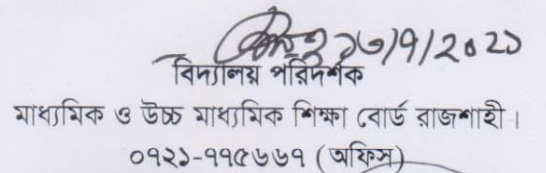 ১৩/৭/২০২১
বিদ্যালয় পরিদর্শক
মাধ্যমিক ও উচ্চ মাধ্যমিক শিক্ষা বোর্ড রাজশাহী।
০৭২১-৭৭৫৬৬৭ (অফিস)